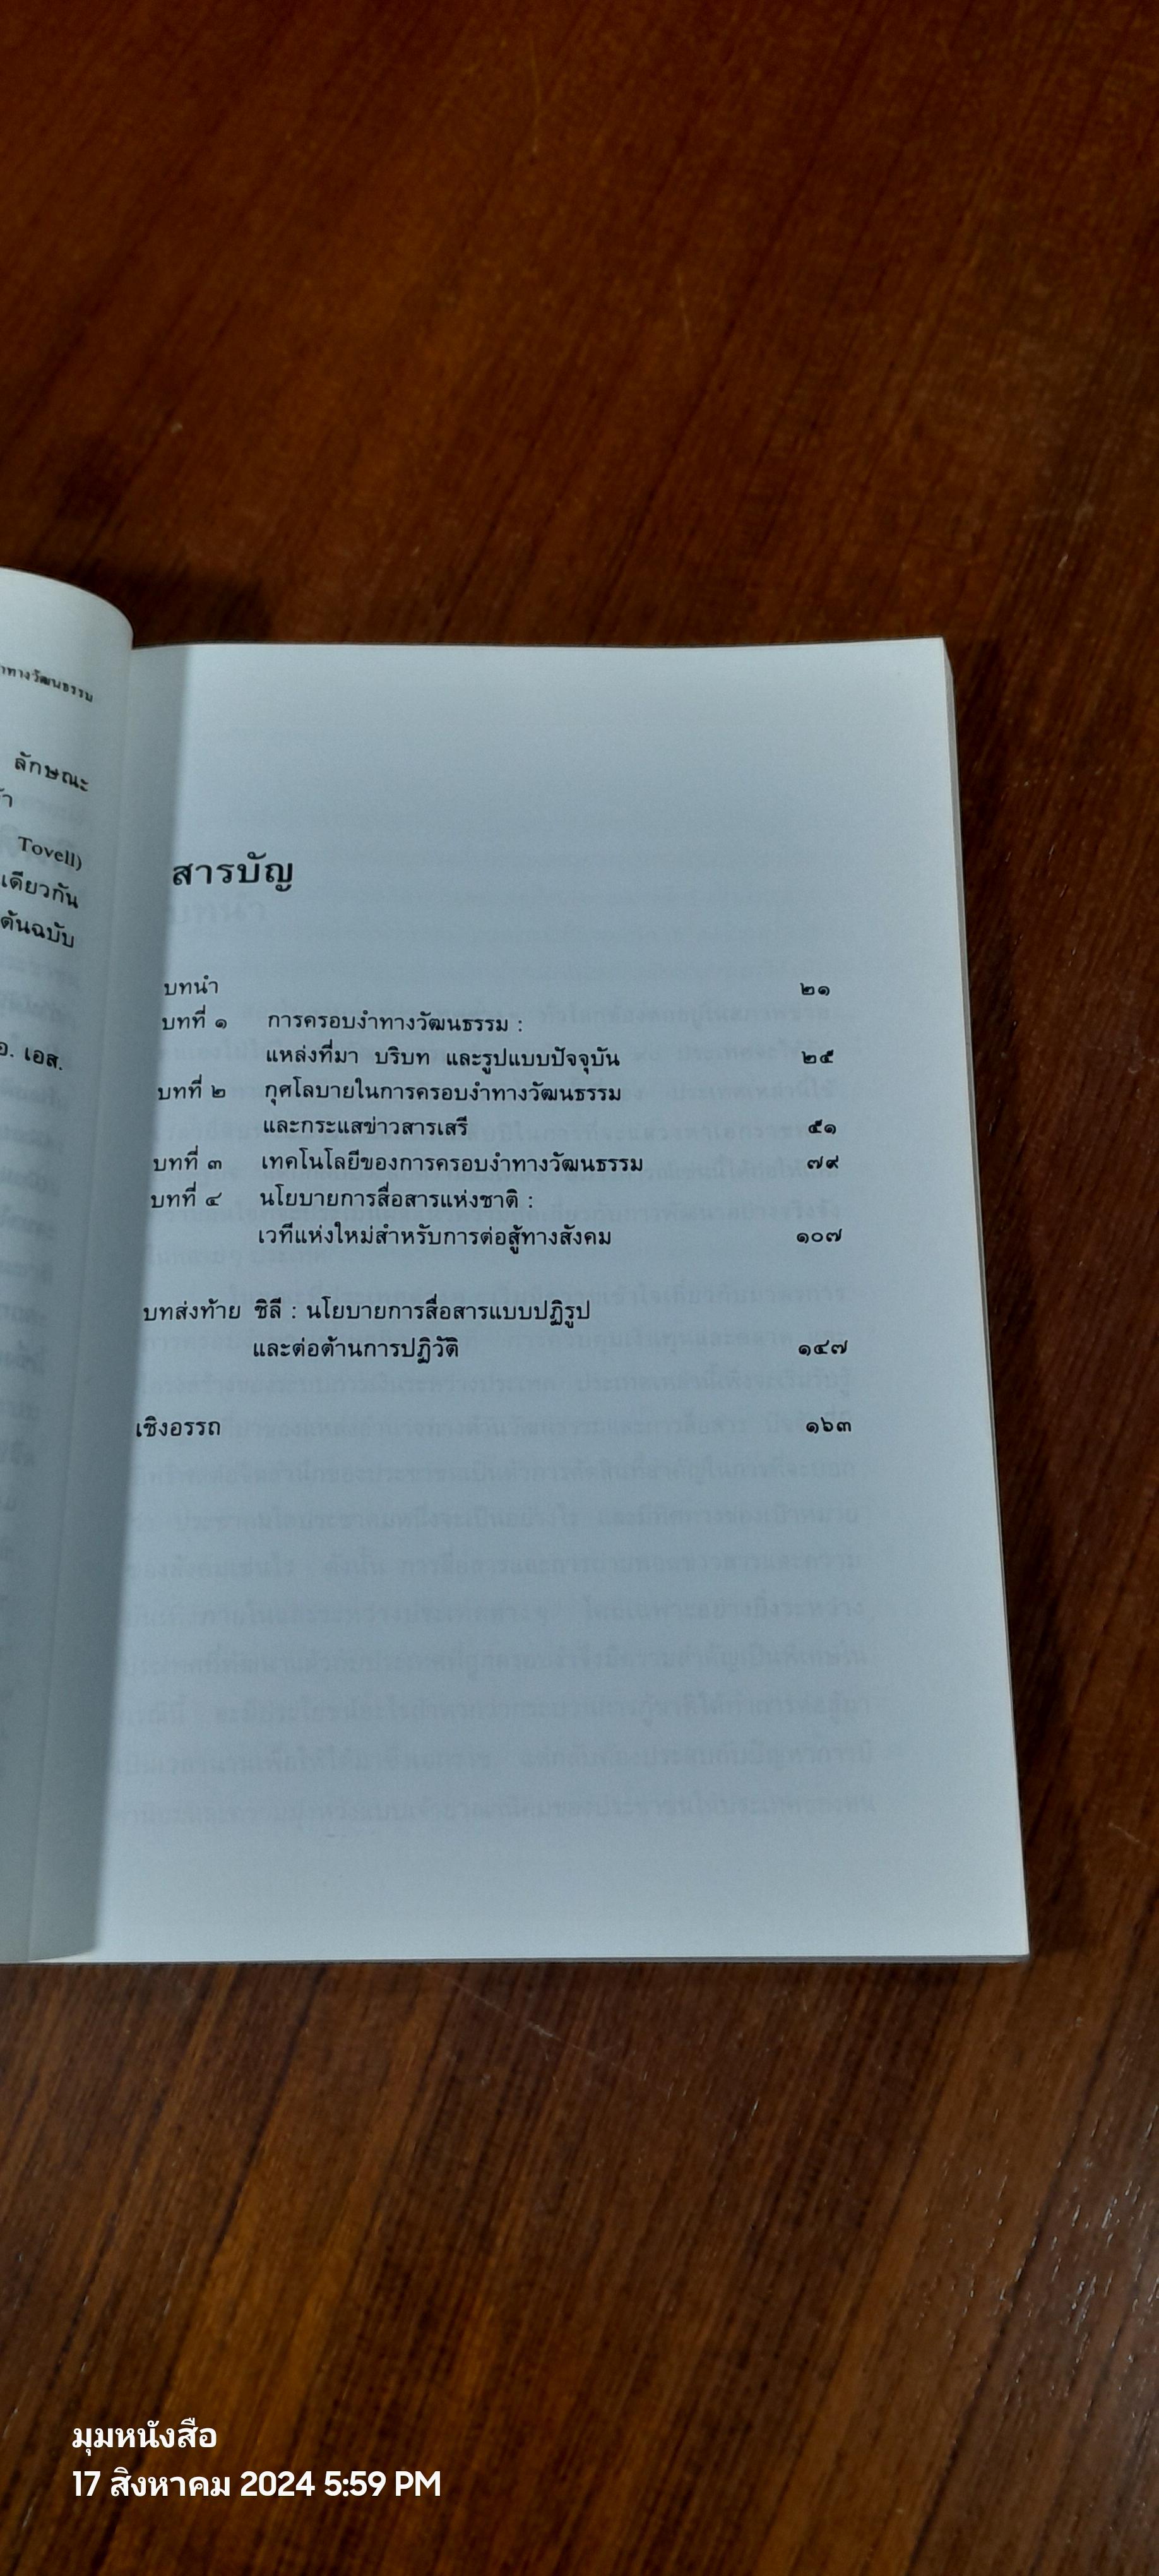 ทางวัฒนธรรม
ลักษณะ
Tovell)
เดียวกัน
ต้นฉบับ
อ. เอส.
สารบัญ
บทนำ ๒๑
บทที่ ๑ การครอบงำทางวัฒนธรรม :
แหล่งที่มา บริบท และรูปแบบปัจจุบัน ๒๕
บทที่ ๒ กุศโลบายในการครอบงำทางวัฒนธรรม
และกระแสข่าวสารเสรี ๕๑
บทที่ ๓ เทคโนโลยีของการครอบงำทางวัฒนธรรม ๗๙
บทที่ ๔ นโยบายการสื่อสารแห่งชาติ :
เวทีแห่งใหม่สำหรับการต่อสู้ทางสังคม ๑๐๗
บทส่งท้าย ชิลี : นโยบายการสื่อสารแบบปฏิรูป
และต่อต้านการปฏิวัติ ๑๔๗
เชิงอรรถ ๑๖๓
มุมหนังสือ
17 สิงหาคม 2024 5:59 PM